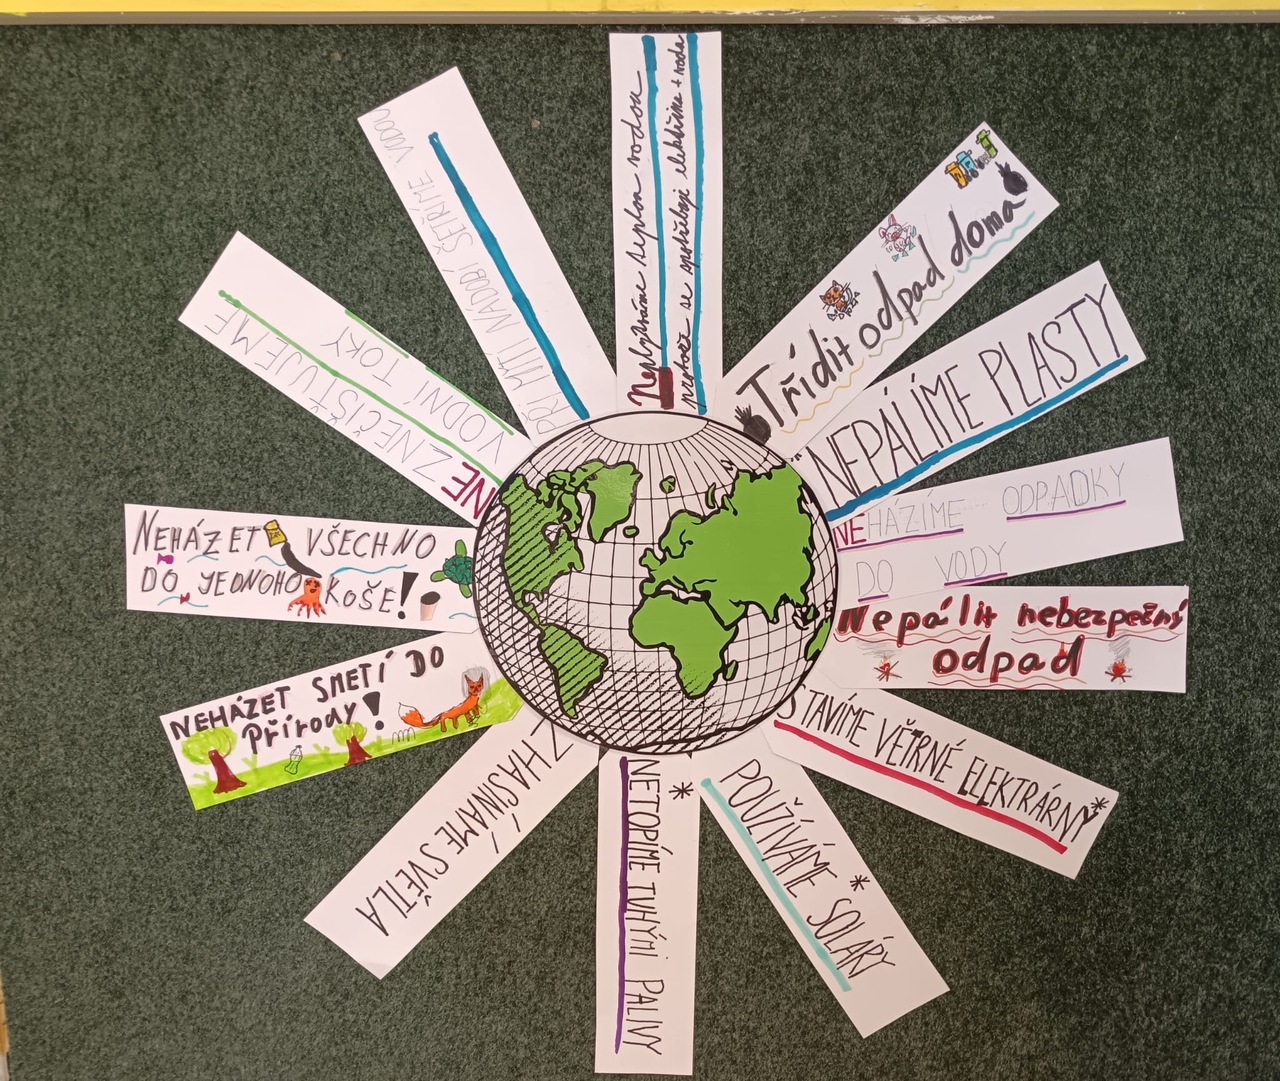 Neplýtváme teplou vodou
protože se spotřebuje elektřina + voda
Třídit odpad doma
NEPÁLÍME PLASTY
NEHÁZÍME ODPADKY
DO VODY
Nepálit nebezpečný
odpad
STAVÍME VĚTRNÉ ELEKTRÁRNY*
POUŽÍVÁME SOLÁRY*
NETOPÍME TUHÝMI PALIVY*
ZHASÍNÁME SVĚTLA
NEHÁZET SMETÍ DO
Přírody!
NEHÁZET VŠECHNO
DO JEDNOHO KOŠE!
NEZNEČIŠŤUJEME
VODNÍ TOKY
PŘI MYTÍ NÁDOBÍ ŠETŘÍME VODOU